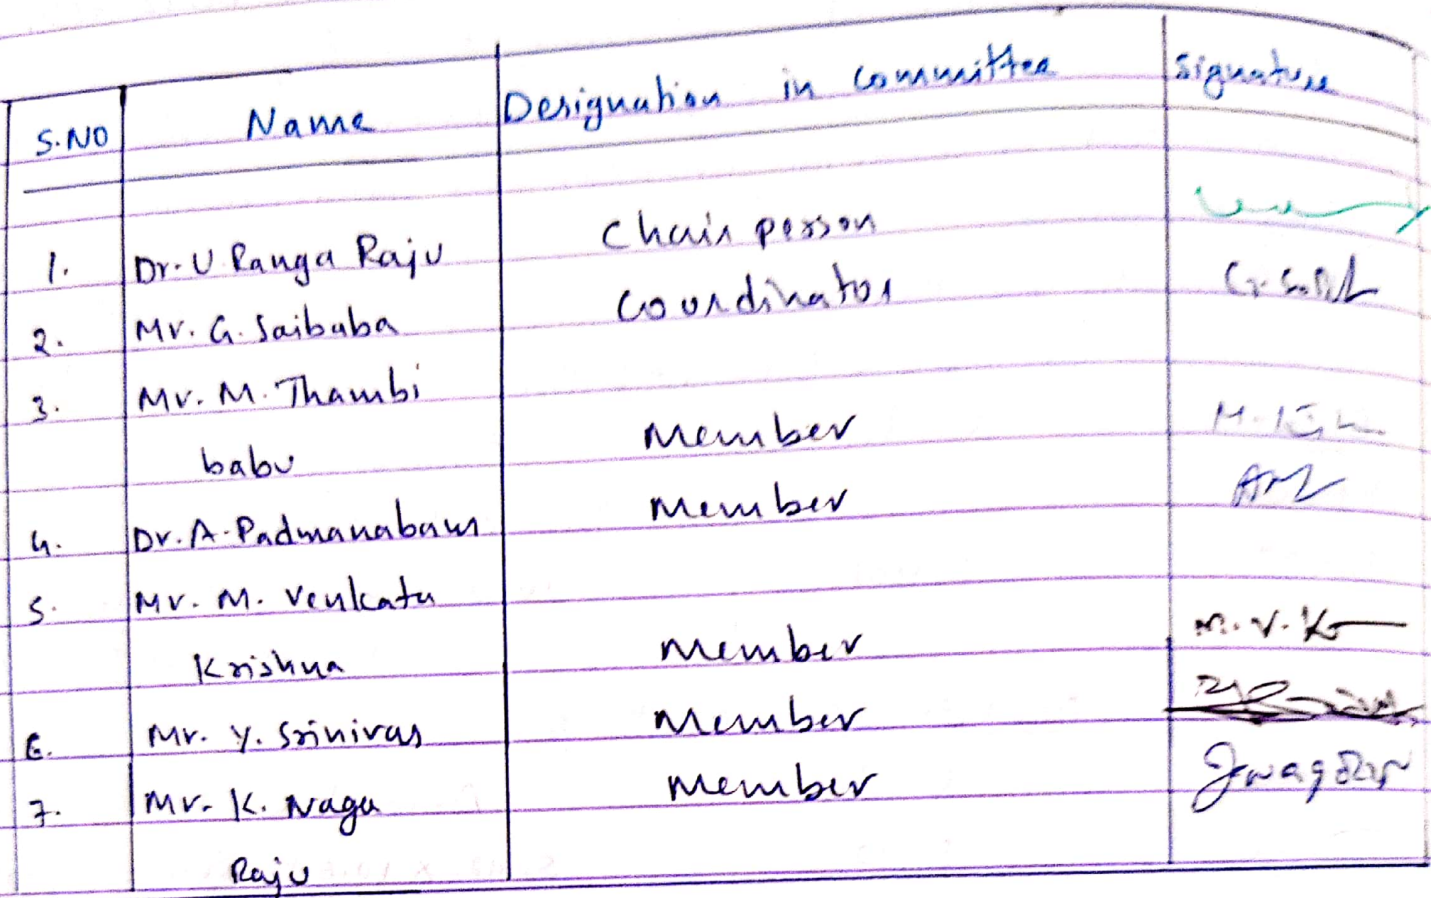 S.NO Name Designation in committee Signature
1. Dr. U. Ranga Raju Chair person
2. Mr. G. Saibaba Coordinator
3. Mr. M. Thambi
babu Member
4. Dr. A. Padmanabam Member
5. Mr. M. Venkata
Krishna Member M.V.K
6. Mr. Y. Srinivas Member
7. Mr. K. Naga Member
Raju